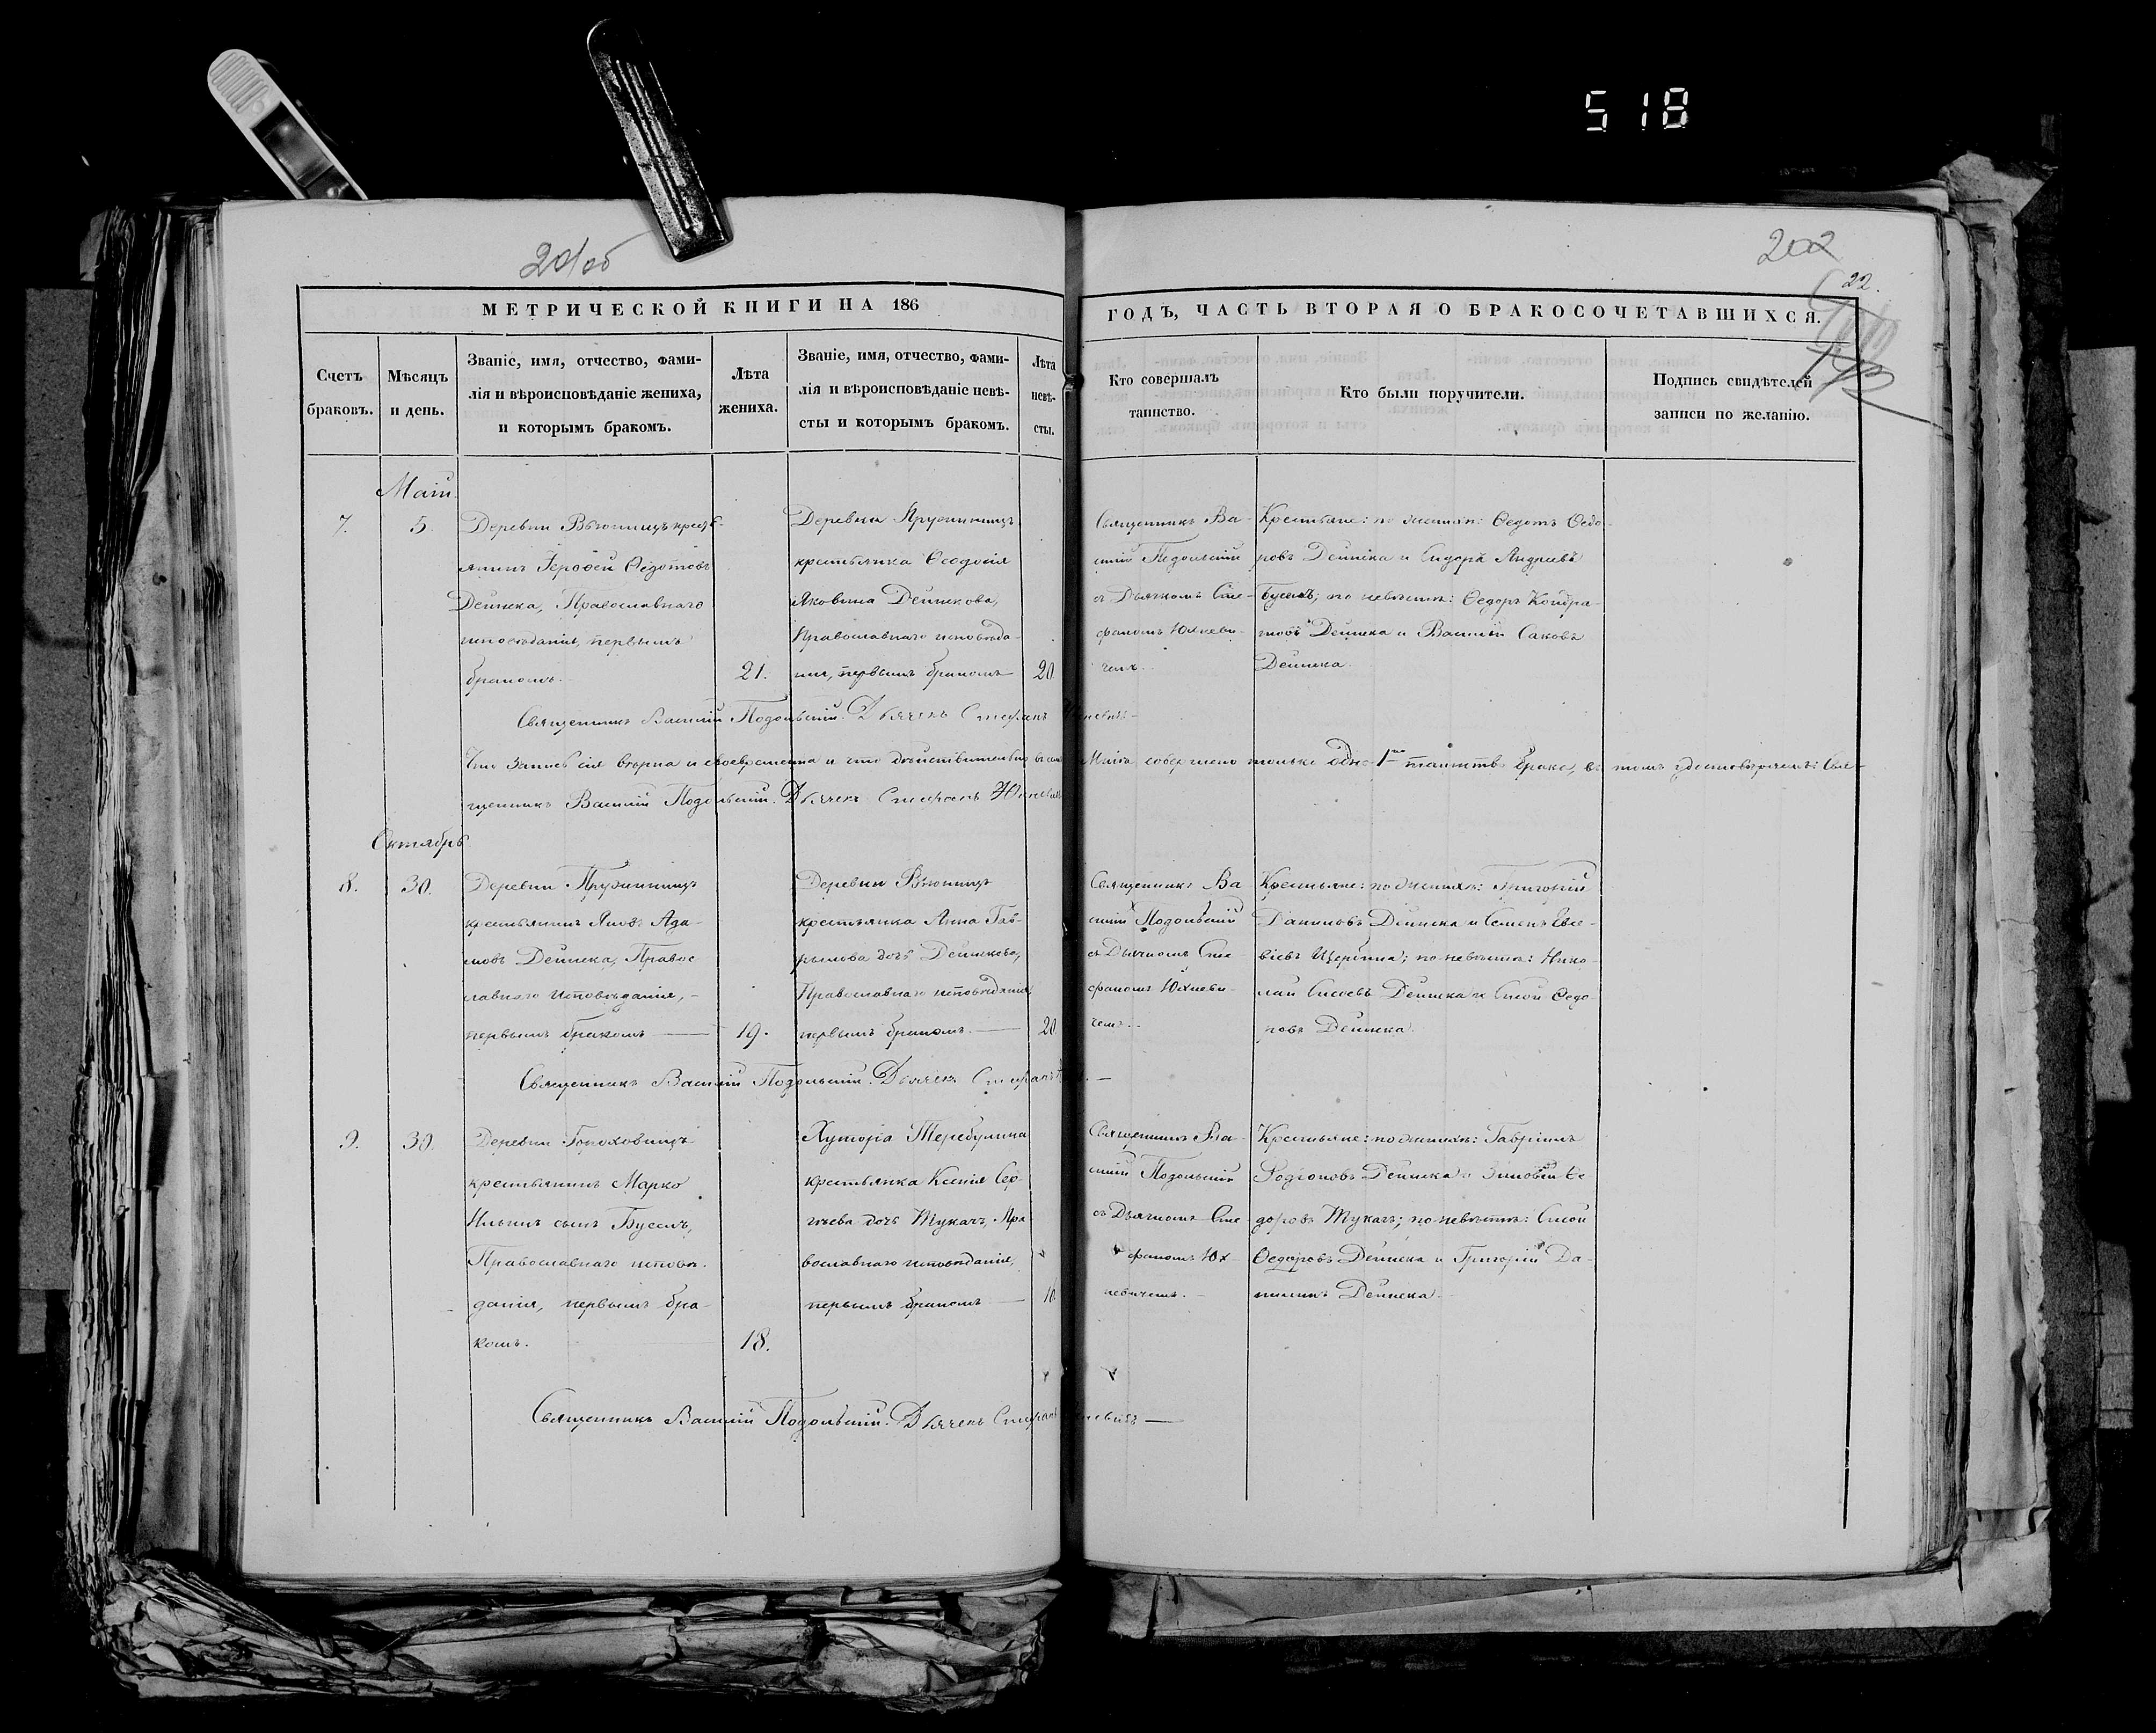 518
201об
202
22.
МЕТРИЧЕСКОЙ КНИГИ НА 186
ГОДЪ, ЧАСТЬ ВТОРАЯ О БРАКОСОЧЕТАВШИХСЯ.
Счетъ
браковъ.
Мѣсяцъ
и день.
Званіе, имя, отчество, фами-
лія и вѣроисповѣданіе жениха,
и которымъ бракомъ.
Лѣта
жениха.
Званіе, имя, отчество, фами-
лія и вѣроисповѣданіе невѣ-
сты и которымъ бракомъ.
Лѣта
невѣ-
сты.
Кто совершалъ
таинство.
Кто были поручители.
Подпись свидѣтелей
записи по желанію.
Май.
7.
5.
Деревни
Ѳедотовъ
Дейнека, Православнаго
исповѣданія, первымъ
бракомъ.
21.
Деревни
крестьянка Ѳеодосія
Яковлева Дейнекова,
Православнаго исповѣда-
нія, первымъ бракомъ
20
Священникъ Ва-
силій Подольскій
съ Дьячкомъ Сте-
фаномъ Юхневи-
чемъ.
Крестьяне: по женихѣ: Ѳедотъ Ѳедо-
ровъ Дейнека и Сидоръ Андреевъ
Буселъ; по невѣстѣ: Ѳедоръ Кондра-
товъ Дейнека и Василій Саковъ
Дейнека.
Священникъ Василій Подольскій. Дьячекъ Стефанъ Юхневичъ
Что запись сія вѣрна и своевременна и что дѣйствительно въ Маѣ совершено только одно 1но таинство брака, въ томъ удостовѣряемъ: Свя-
щенникъ Василій Подольскій. Дьячекъ Стефанъ Юхневичъ
Октябрь.
8.
30.
Деревни
крестьянинъ Яковъ Ада-
мовъ Дейнека, Правос
лавнаго исповѣданія, -
первымъ бракомъ
19.
Деревни Вѣюницъ
крестьянка Анна Гав-
рылова дочь Дейнекова,
Православнаго исповѣданія
первымъ бракомъ.
20
Священникъ Ва
силій Подольскій
съ Дьячкомъ Сте-
фаномъ Юхневи-
чемъ.
Крестьяне: по женихѣ: Григорій
Даниловъ Дейнека и Семенъ Евсе-
віевъ Щербина; по невѣстѣ: Нико-
лай Сисоевъ Дейнека и Сисой Ѳедо-
ровъ Дейнека.
Священникъ Василій Подольскій. Дьячекъ Стефанъ
9.
30.
Деревни Гороховищъ
крестьянинъ Марко
Ильинъ сынъ Буселъ,
Православнаго исповѣ-
данія, первымъ бра-
комъ.
18.
Хуторіа Теребулина
крестьянка Ксенія Сер-
гѣева дочь Тукачъ, Пра-
вославнаго исповѣданія,
первымъ бракомъ
Священникъ Ва-
силій Подольскій
съ Дьячкомъ Сте-
фаномъ Юх-
невичемъ.
Крестьяне: по женихѣ: Гавріилъ
Родіоновъ Дейнека и Зиновій Ѳе
доровъ Тукачъ; по невѣстѣ: Сисой
Ѳедоровъ Дейнека и Григорій Да-
ниловъ Дейнека.
Священникъ Василій Подольскій. Дьячекъ Стефанъ Юхневичъ